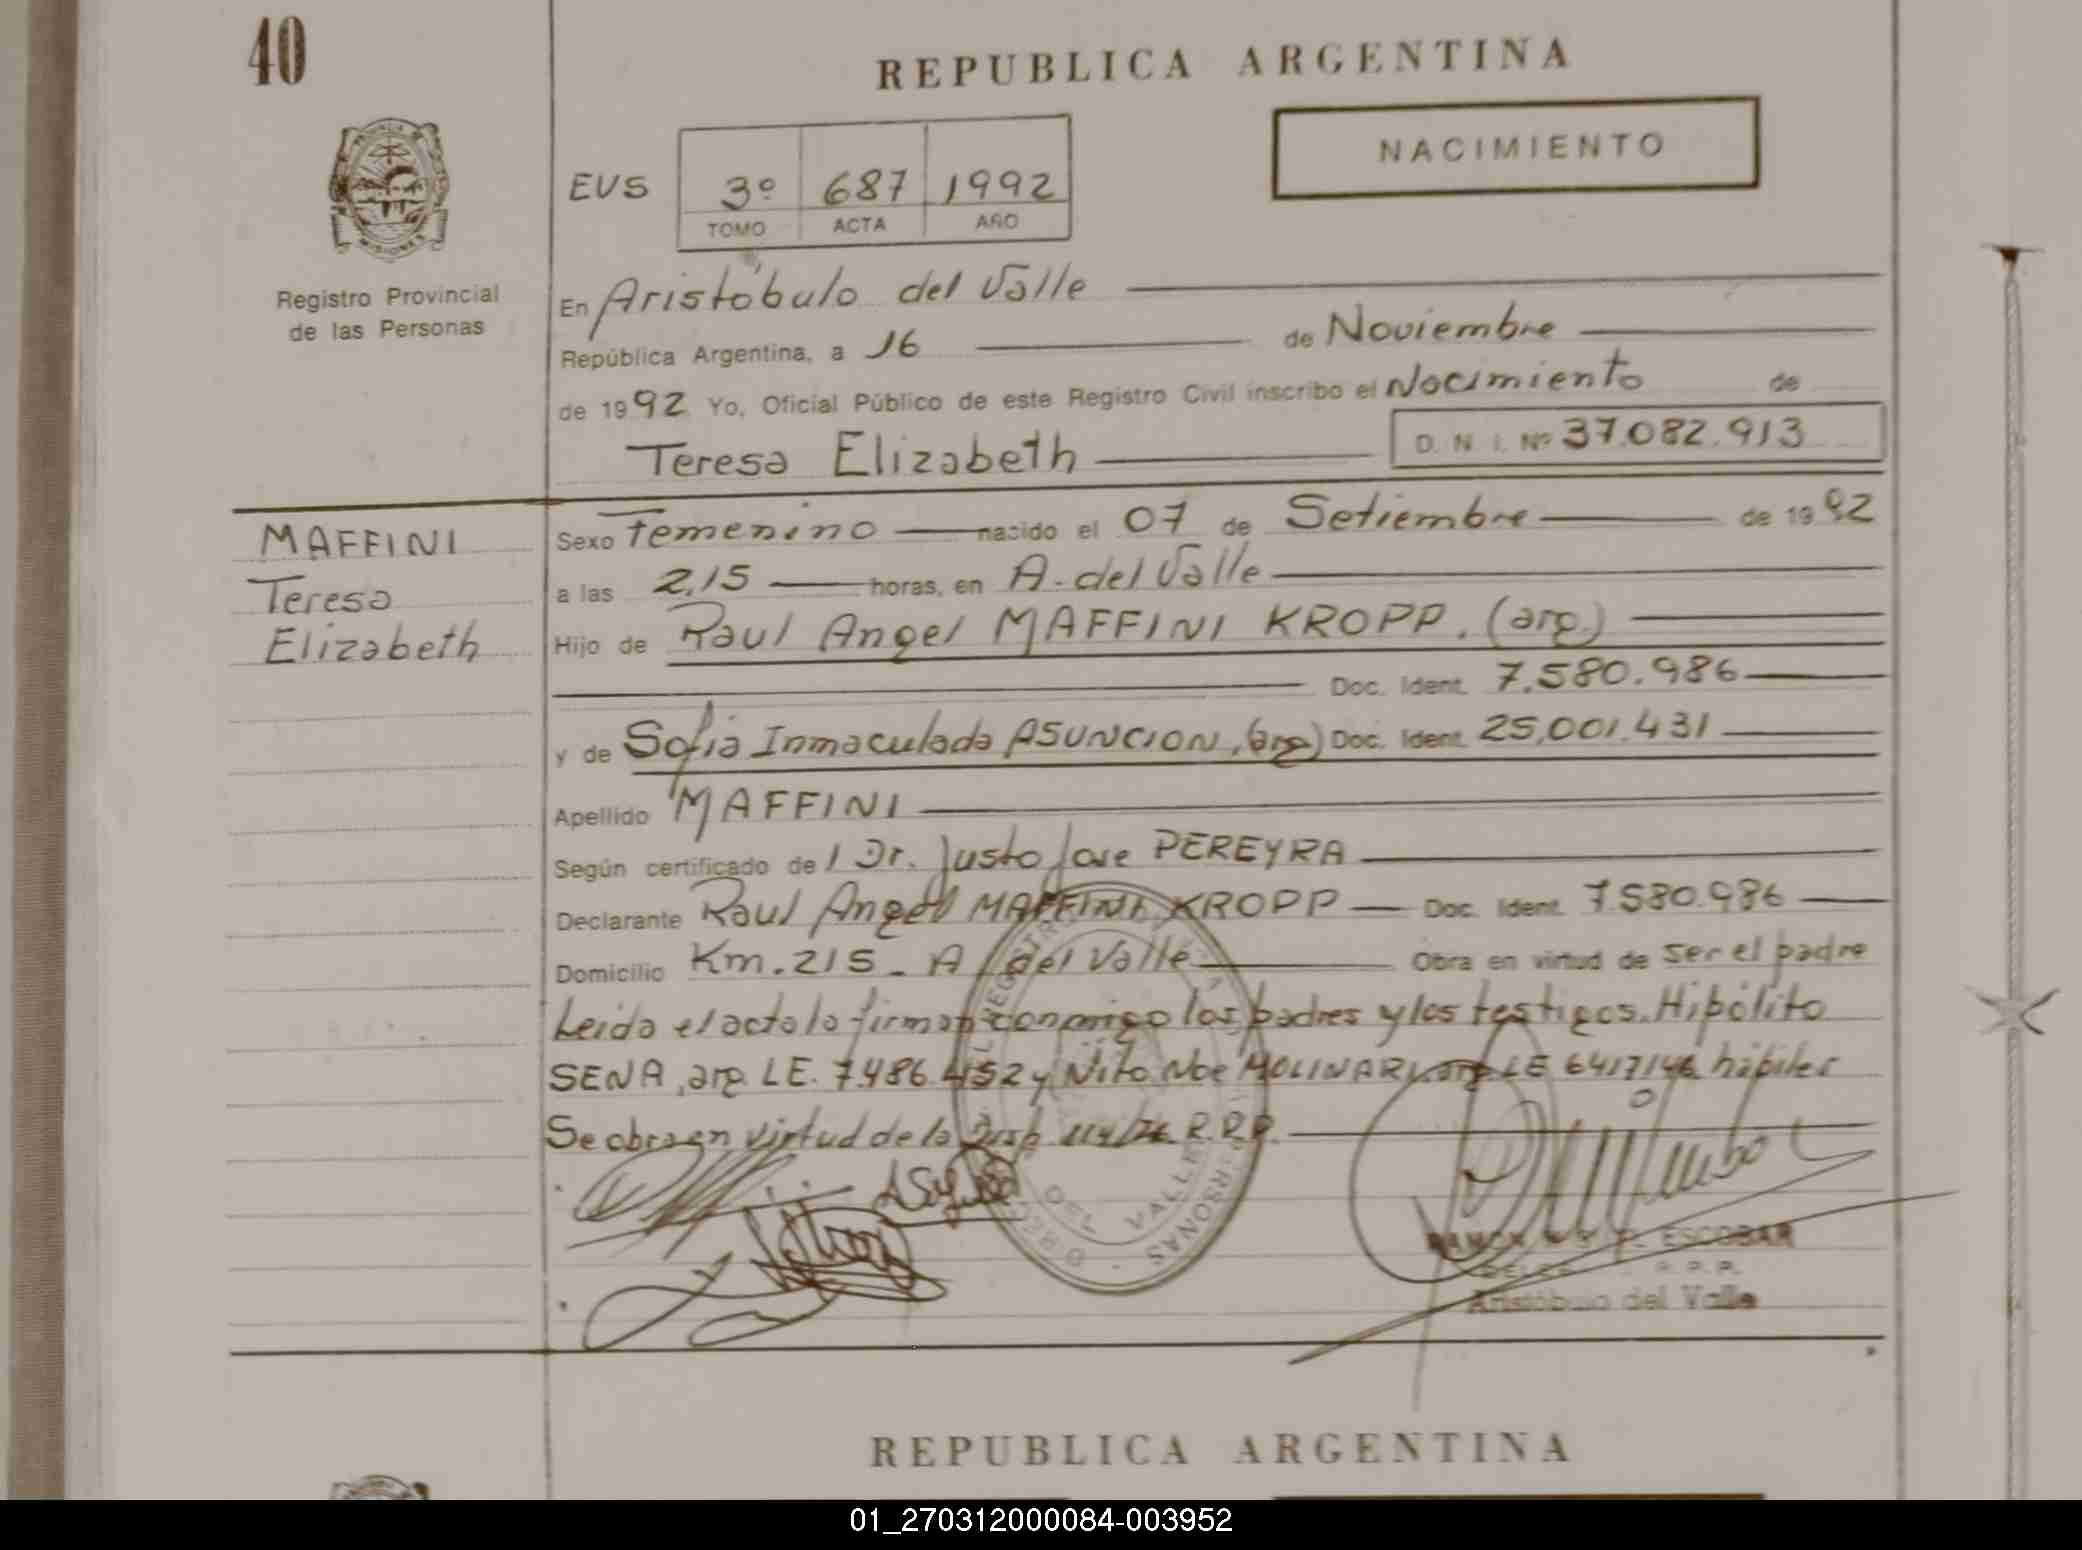 40
REPUBLICA ARGENTINA
NACIMIENTO
EVS 3º 687 1992
TOMO ACTA AÑO
MISIONES
Registro Provincial
de las Personas
En Aristóbulo del Valle
República Argentina, a 16 de Noviembre
de 1992 Yo, Oficial Público de este Registro Civil inscribo el Nacimiento de
Teresa Elizabeth D. N. I. Nº 37.082.913
MAFFINI
Teresa
Elizabeth
Sexo Femenino nacido el 07 de Setiembre de 1992
a las 2,15 horas, en A. del Valle
Hijo de Raul Angel MAFFINI KROPP. (arg.)
Doc. Ident. 7.580.986
y de Sofia Inmaculada ASUNCION, (arg) Doc. Ident. 25,001.431
Apellido MAFFINI
Según certificado de l Dr. Justo Jose PEREYRA
Declarante Raul Angel MAFFINI KROPP Doc. Ident. 7.580.986
Domicilio Km. 215 - A. del Valle Obra en virtud de ser el padre
Leida el acta la firman conmigo los padres y los testigos. Hipólito
SENA, arg. LE. 7.486.452 y Noe MOLINARI, arg. LE 6417146 hábiles
Se obra en virtud de la Disp. R.P.P.
DEL VALLE
ESCOBAR
R. P. P.
Aristóbulo del Valle
REPUBLICA ARGENTINA
01_270312000084-003952